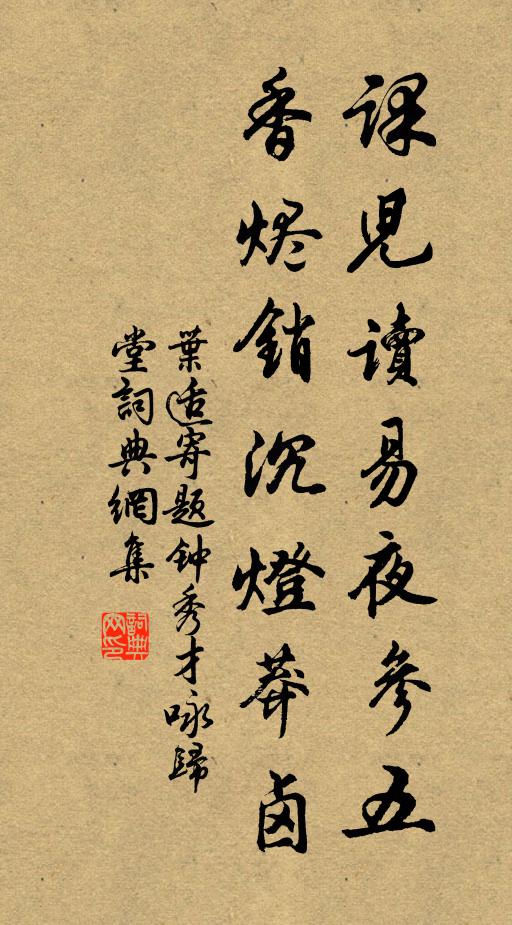 課児讀易夜參五
香烬銷沉燈莽卤
葉适寄題钟秀才咏歸
堂詞典網集
詞典網印